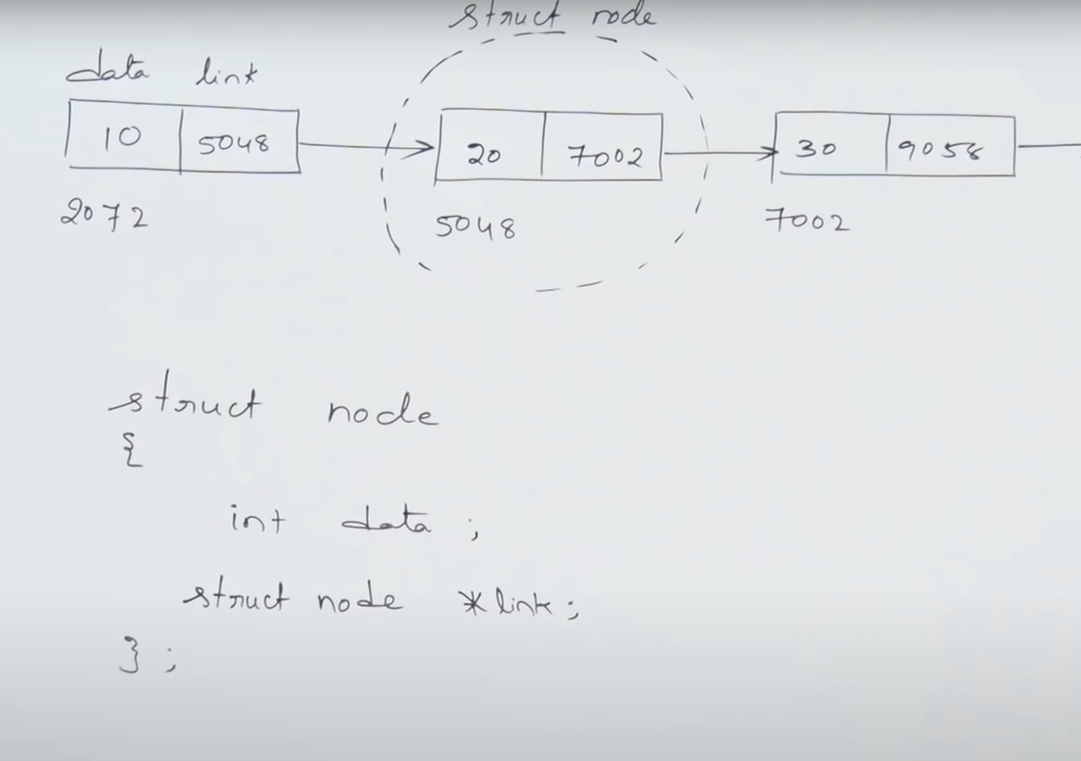 struct node
data link
10 5048 20 7002 30 9058
2072 5048 7002
struct node
{
int data ;
struct node *link ;
} ;